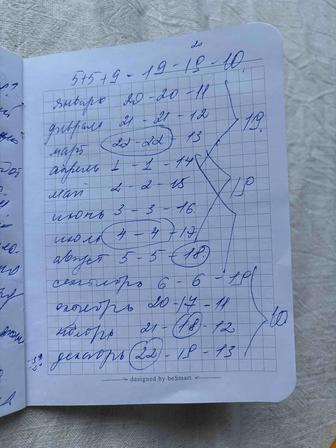 5+5+9 - 19 - 19 - 10.
январь 20 - 20 - 11
февраль 21 - 21 - 12
март 22 - 22 - 13
19.
апрель 1 - 1 - 14
май 2 - 2 - 15
июнь 3 - 3 - 16
июль 4 - 4 - 17
август 5 - 5 - 18
сентябрь 6 - 6 - 19
октябрь 20 - 17 - 11
ноябрь 21 - 18 - 12
10
декабрь 22 - 18 - 13
designed by beSmart